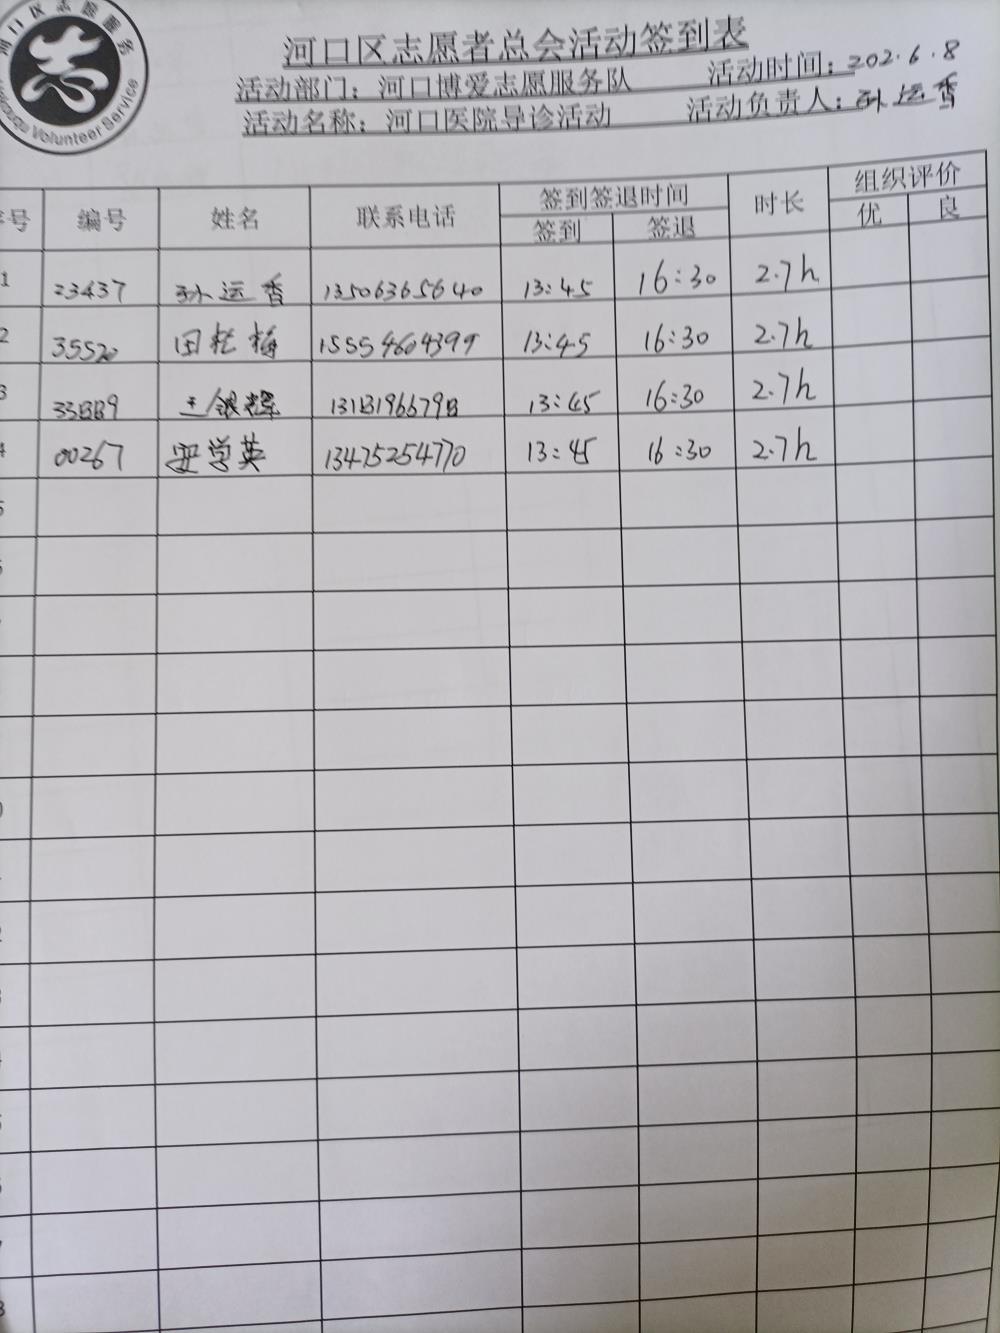 河口区志愿服务
Hekouqu Volunteer Service
河口区志愿者总会活动签到表
活动部门：河口博爱志愿服务队 活动时间：202.6.8
活动名称：河口医院导诊活动 活动负责人：孙运香
序号 编号 姓名 联系电话 签到签退时间 时长 组织评价
签到 签退 优 良
1 23437 孙运香 13506365640 13:45 16:30 2.7h
2 35520 田乾梅 15554604399 13:45 16:30 2.7h
3 33889 王银辉 13181966798 13:45 16:30 2.7h
4 00267 安学英 13475254770 13:45 16:30 2.7h